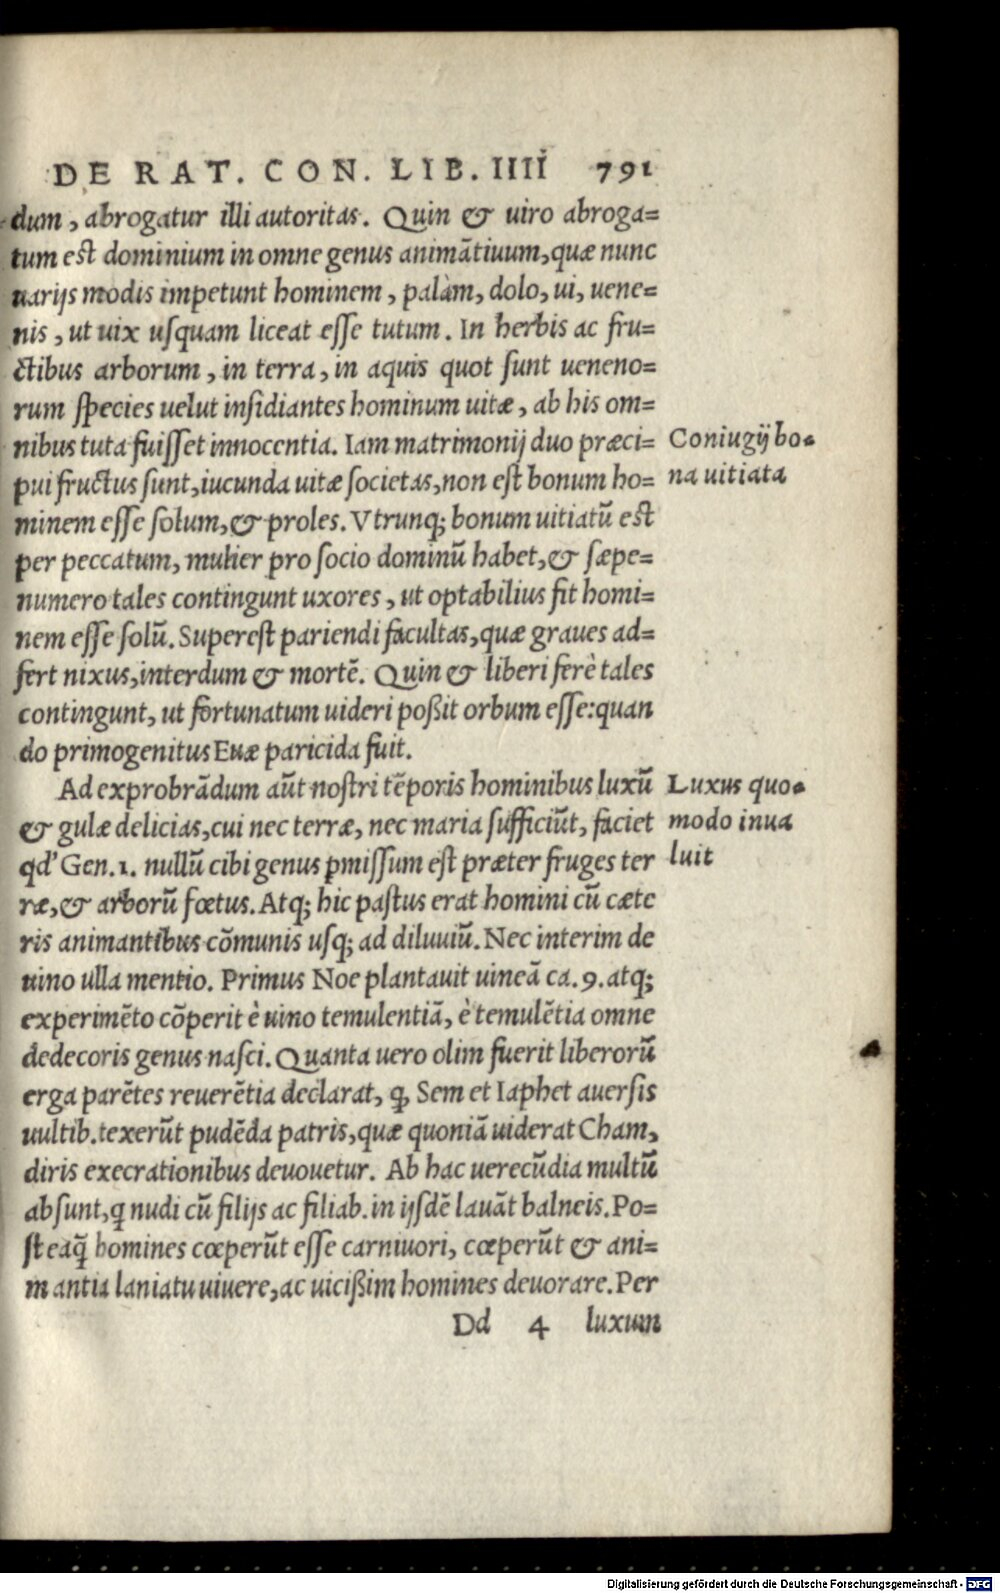 DE RAT. CON. LIB. IIII 791
dum, abrogatur illi autoritas. Quin & uiro abroga=
tum est dominium in omne genus animãtiuum, quæ nunc
uarijs modis impetunt hominem, palàm, dolo, ui, uene=
nis, ut uix usquam liceat esse tutum. In herbis ac fru=
ctibus arborum, in terra, in aquis quot sunt ueneno=
rum species uelut insidiantes hominum uitæ, ab his om=
nibus tuta fuisset innocentia. Iam matrimonij duo præci=
pui fructus sunt, iucunda uitæ societas, non est bonum ho=
minem esse solum, & proles. Vtrunq; bonum uitiatũ est
per peccatum, mulier pro socio dominũ habet, & sæpe=
numero tales contingunt uxores, ut optabilius sit homi=
nem esse solũ. Superest pariendi facultas, quæ graues ad=
fert nixus, interdum & mortẽ. Quin & liberi ferè tales
contingunt, ut fortunatum uideri poßit orbum esse: quan
do primogenitus Euæ paricida fuit.
Coniugij bo=
na uitiata
Ad exprobrãdum aũt nostri tẽporis hominibus luxũ
& gulæ delicias, cui nec terræ, nec maria sufficiũt, faciet
qd' Gen. 1. nullũ cibi genus ꝑmissum est præter fruges ter
ræ, & arborũ fœtus. Atq; hic pastus erat homini cũ cæte
ris animantibus cõmunis usq; ad diluuiũ. Nec interim de
uino ulla mentio. Primus Noe plantauit uineã ca. 9. atq;
experimẽto cõperit è uino temulentiã, è temulẽtia omne
dedecoris genus nasci. Quanta uero olim fuerit liberorũ
erga parẽtes reuerẽtia declarat, ꝙ Sem et Iaphet auersis
uultib. texerũt pudẽda patris, quæ quoniã uiderat Cham,
diris execrationibus deuouetur. Ab hac uerecũdia multũ
absunt, q nudi cũ filijs ac filiab. in ijsdẽ lauãt balneis. Po=
steaq̃ homines cœperũt esse carniuori, cœperũt & ani=
mantia laniatu uiuere, ac uicißim homines deuorare. Per
Luxus quo=
modo inua
luit
Dd 4 luxum
Digitalisierung gefördert durch die Deutsche Forschungsgemeinschaft - DFG